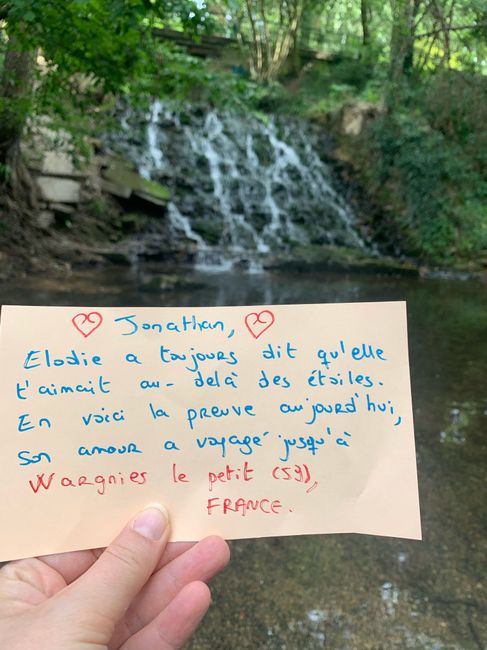 Jonathan,
Elodie a toujours dit qu'elle
t'aimait au-delà des étoiles.
En voici la preuve aujourd'hui,
son amour a voyagé jusqu'à
Wargnies le petit (59),
FRANCE.